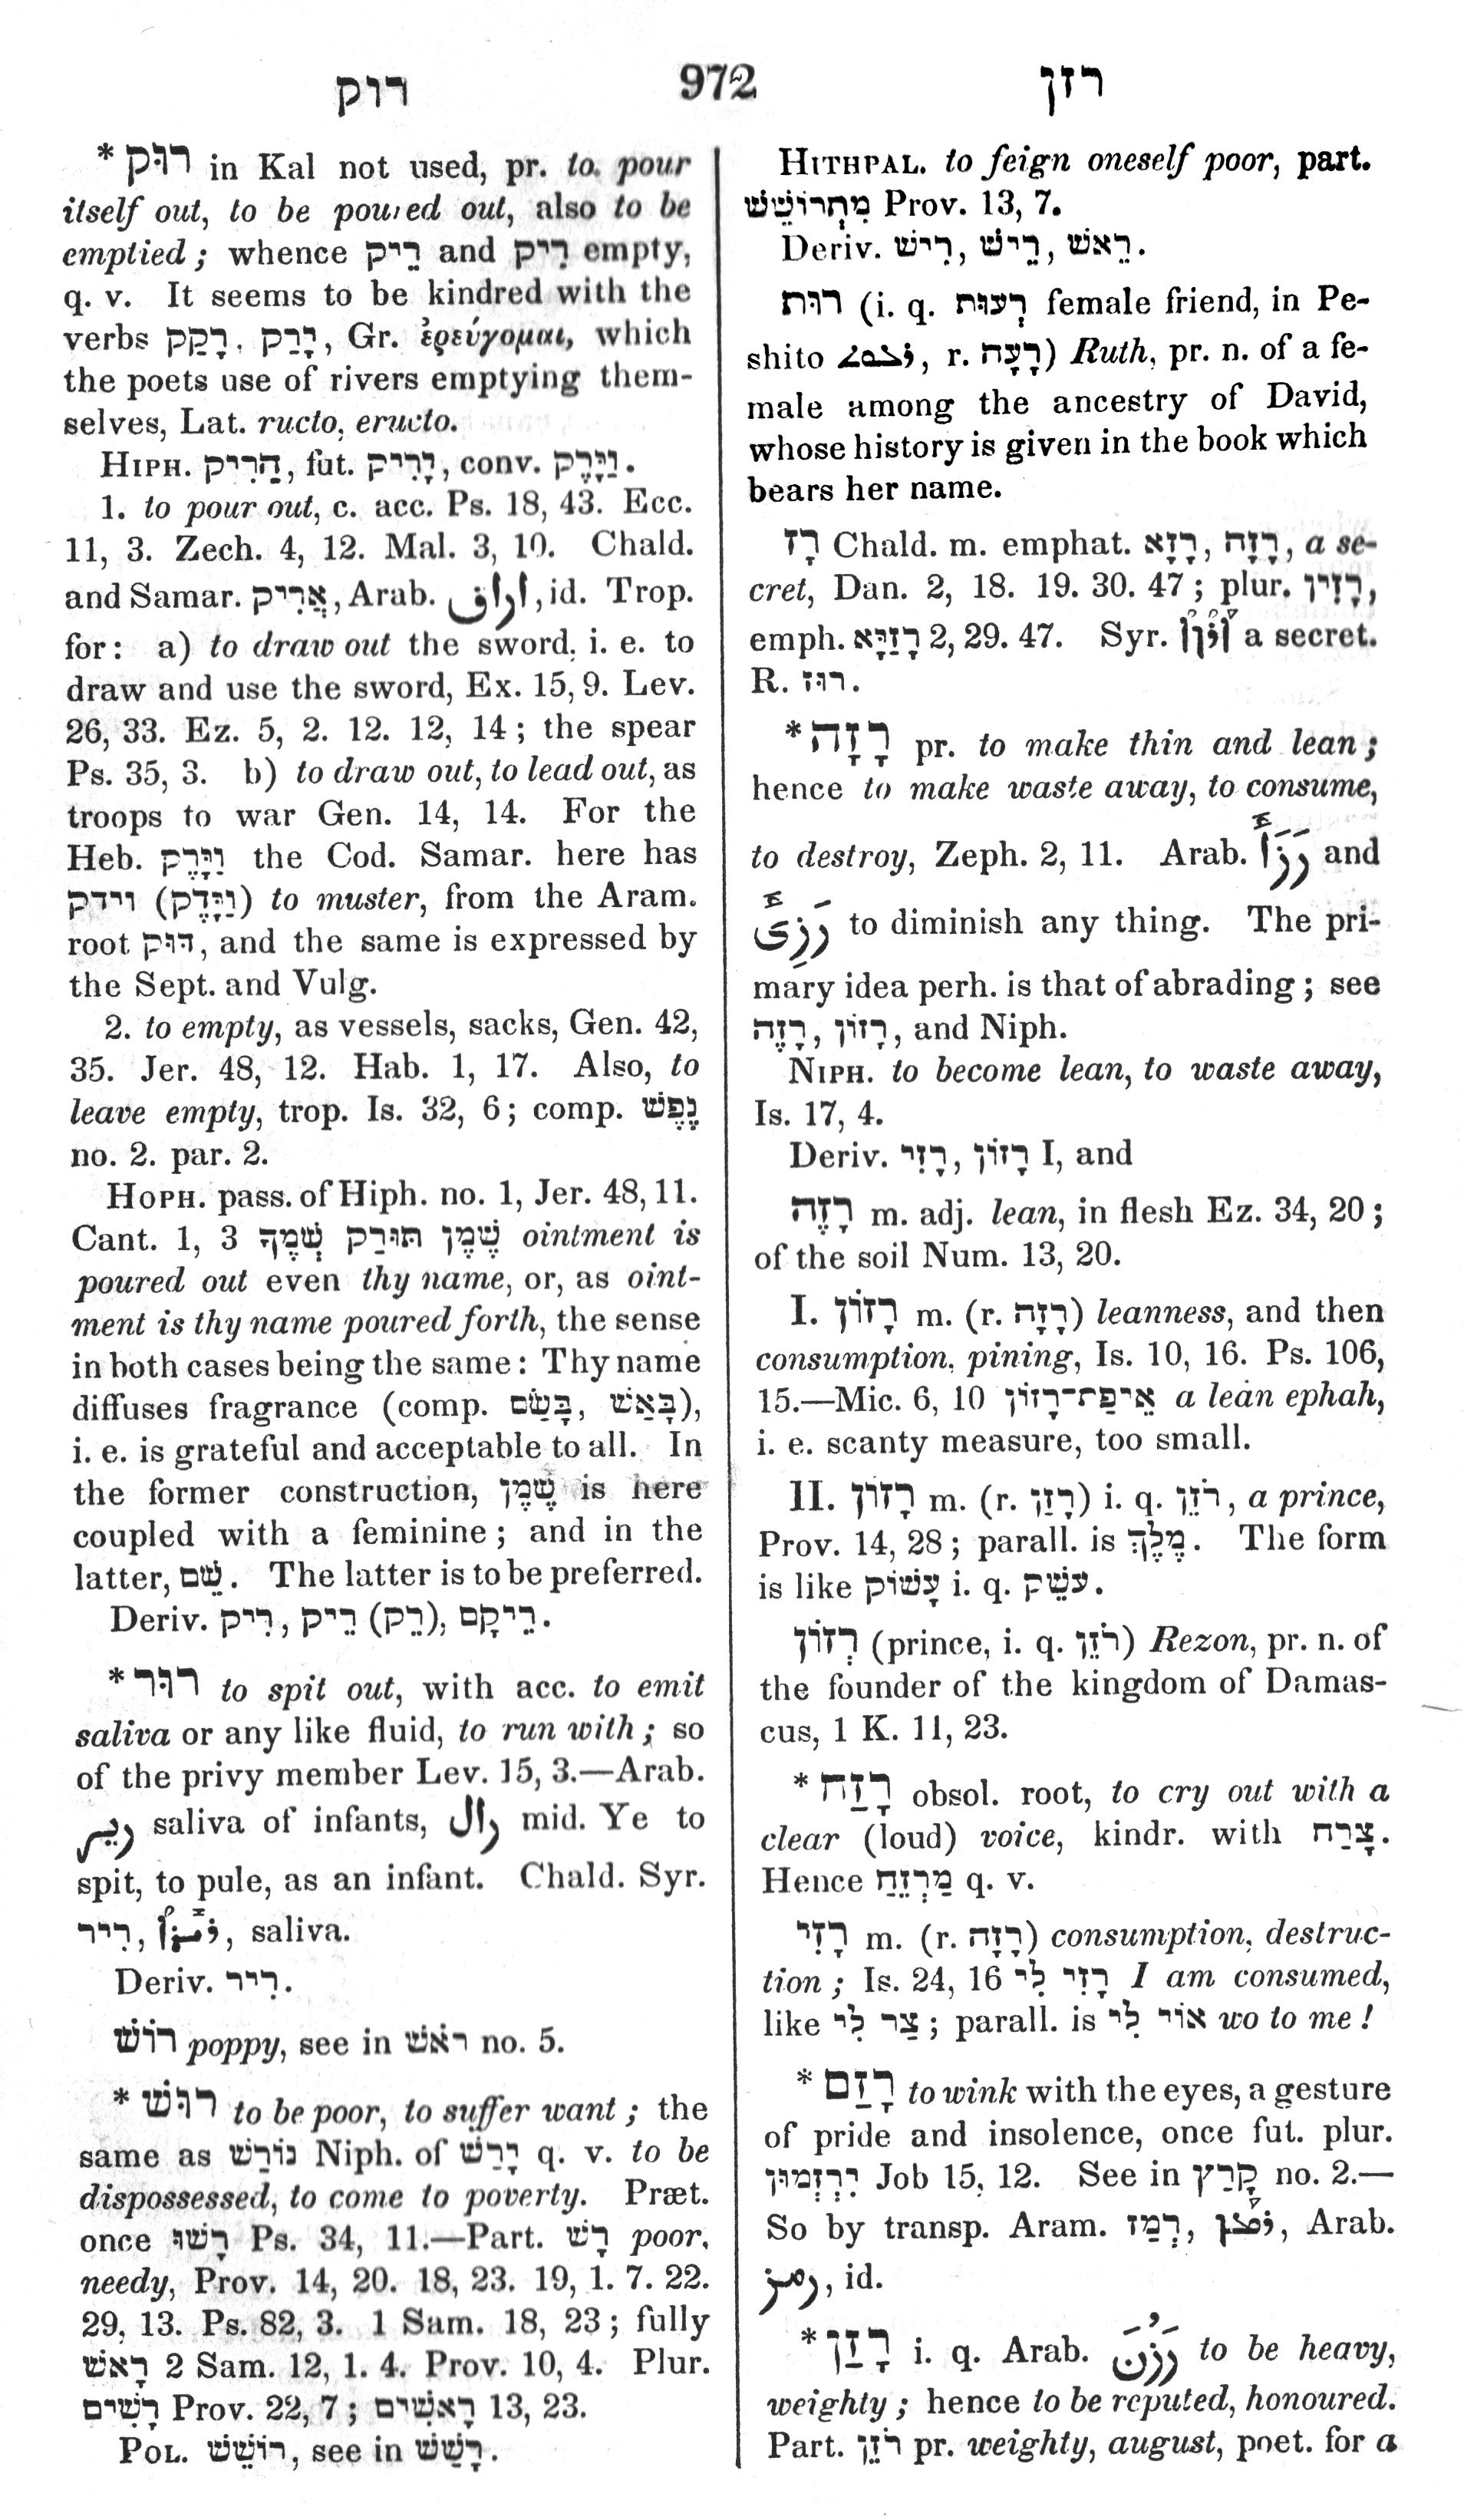 רוק 972 רזן
* רוּק in Kal not used, pr. to pour
itself out, to be poured out, also to be
emptied; whence רֵיק and רִיק empty,
q. v. It seems to be kindred with the
verbs רָקַק, יָרַק, Gr. ἐρεύγομαι, which
the poets use of rivers emptying them-
selves, Lat. ructo, eructo.
HIPH. הֵרִיק, fut. יָרִיק, conv. וַיָּרֶק.
1. to pour out, c. acc. Ps. 18, 43. Ecc.
11, 3. Zech. 4, 12. Mal. 3, 10. Chald.
and Samar. אֲרִיק, Arab. اراق, id. Trop.
for: a) to draw out the sword, i. e. to
draw and use the sword, Ex. 15, 9. Lev.
26, 33. Ez. 5, 2. 12. 12, 14; the spear
Ps. 35, 3. b) to draw out, to lead out, as
troops to war Gen. 14, 14. For the
Heb. וַיָּרֶק the Cod. Samar. here has
וידק (וַיָּדֶק) to muster, from the Aram.
root דּוּק, and the same is expressed by
the Sept. and Vulg.
2. to empty, as vessels, sacks, Gen. 42,
35. Jer. 48, 12. Hab. 1, 17. Also, to
leave empty, trop. Is. 32, 6; comp. נֶפֶשׁ
no. 2. par. 2.
HOPH. pass. of Hiph. no. 1, Jer. 48, 11.
Cant. 1, 3 שֶׁמֶן תּוּרַק שְׁמֶךָ ointment is
poured out even thy name, or, as oint-
ment is thy name poured forth, the sense
in both cases being the same: Thy name
diffuses fragrance (comp. בָּאַשׁ, בָּשַׂם),
i. e. is grateful and acceptable to all. In
the former construction, שֶׁמֶן is here
coupled with a feminine; and in the
latter, שֵׁם. The latter is to be preferred.
Deriv. רִיק, רֵיק (רֵק), רֵיקָם.
* רוּר to spit out, with acc. to emit
saliva or any like fluid, to run with; so
of the privy member Lev. 15, 3.—Arab.
رير saliva of infants, رال mid. Ye to
spit, to pule, as an infant. Chald. Syr.
רִיר, ܪܝܪܐ, saliva.
Deriv. רִיר.
רוֹשׁ poppy, see in רֹאשׁ no. 5.
* רוּשׁ to be poor, to suffer want; the
same as נוֹרַשׁ Niph. of יָרַשׁ q. v. to be
dispossessed, to come to poverty. Præt.
once רָשׁוּ Ps. 34, 11.—Part. רָשׁ poor,
needy, Prov. 14, 20. 18, 23. 19, 1. 7. 22.
29, 13. Ps. 82, 3. 1 Sam. 18, 23; fully
רָאשׁ 2 Sam. 12, 1. 4. Prov. 10, 4. Plur.
רָשִׁים Prov. 22, 7; רָאשִׁים 13, 23.
POL. רוֹשֵׁשׁ, see in רָשַׁשׁ.
HITHPAL. to feign oneself poor, part.
מִתְרוֹשֵׁשׁ Prov. 13, 7.
Deriv. רֵאשׁ, רֵישׁ, רִישׁ.
רוּת (i. q. רְעוּת female friend, in Pe-
shito ܪܥܘܬ, r. רָעָה) Ruth, pr. n. of a fe-
male among the ancestry of David,
whose history is given in the book which
bears her name.
רָז Chald. m. emphat. רָזָא, רָזָה, a se-
cret, Dan. 2, 18. 19. 30. 47; plur. רָזִין,
emph. רָזַיָּא 2, 29. 47. Syr. ܐܪܙܐ a secret.
R. רוּז.
* רָזָה pr. to make thin and lean;
hence to make waste away, to consume,
to destroy, Zeph. 2, 11. Arab. رَزَأَ and
رَزِئَ to diminish any thing. The pri-
mary idea perh. is that of abrading; see
רָזֶה, רָזוֹן, and Niph.
NIPH. to become lean, to waste away,
Is. 17, 4.
Deriv. רָזִי, רָזוֹן I, and
רָזֶה m. adj. lean, in flesh Ez. 34, 20;
of the soil Num. 13, 20.
I. רָזוֹן m. (r. רָזָה) leanness, and then
consumption, pining, Is. 10, 16. Ps. 106,
15.—Mic. 6, 10 אֵיפַת־רָזוֹן a lean ephah,
i. e. scanty measure, too small.
II. רָזוֹן m. (r. רָזַן) i. q. רֹזֵן, a prince,
Prov. 14, 28; parall. is מֶלֶךְ. The form
is like עָשׁוֹק i. q. עֹשֵׁק.
רְזוֹן (prince, i. q. רֹזֵן) Rezon, pr. n. of
the founder of the kingdom of Damas-
cus, 1 K. 11, 23.
* רָזַח obsol. root, to cry out with a
clear (loud) voice, kindr. with צָרַח.
Hence מַרְזֵחַ q. v.
רָזִי m. (r. רָזָה) consumption, destruc-
tion; Is. 24, 16 רָזִי לִי I am consumed,
like צַר לִי; parall. is אוֹי לִי wo to me!
* רָזַם to wink with the eyes, a gesture
of pride and insolence, once fut. plur.
יִרְזְמוּן Job 15, 12. See in קָרַץ no. 2.—
So by transp. Aram. רְמַז, ܪܡܙ, Arab.
رمز, id.
* רָזַן i. q. Arab. رَزُنَ to be heavy,
weighty; hence to be reputed, honoured.
Part. רֹזֵן pr. weighty, august, poet. for a